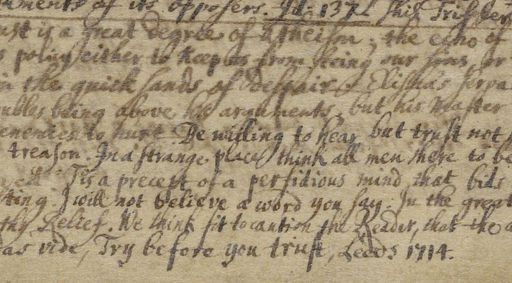 of its opposers. Id: 137
is a great degree of Atheism; the echo of
policy either to keep us from seeing our sins, or
in the quick sands of Despair. Elisha's
troubles being above his arguments, but his Master
to hurt. Be willing to hear, but trust not
treason. In a strange place, think all men there to be
Tis a precept of a perfidious mind, that bids
I will not believe a word you say. In the great
thy Relief. We think fit to caution the Reader, that the
vide, Try before you trust, Leeds 1714.